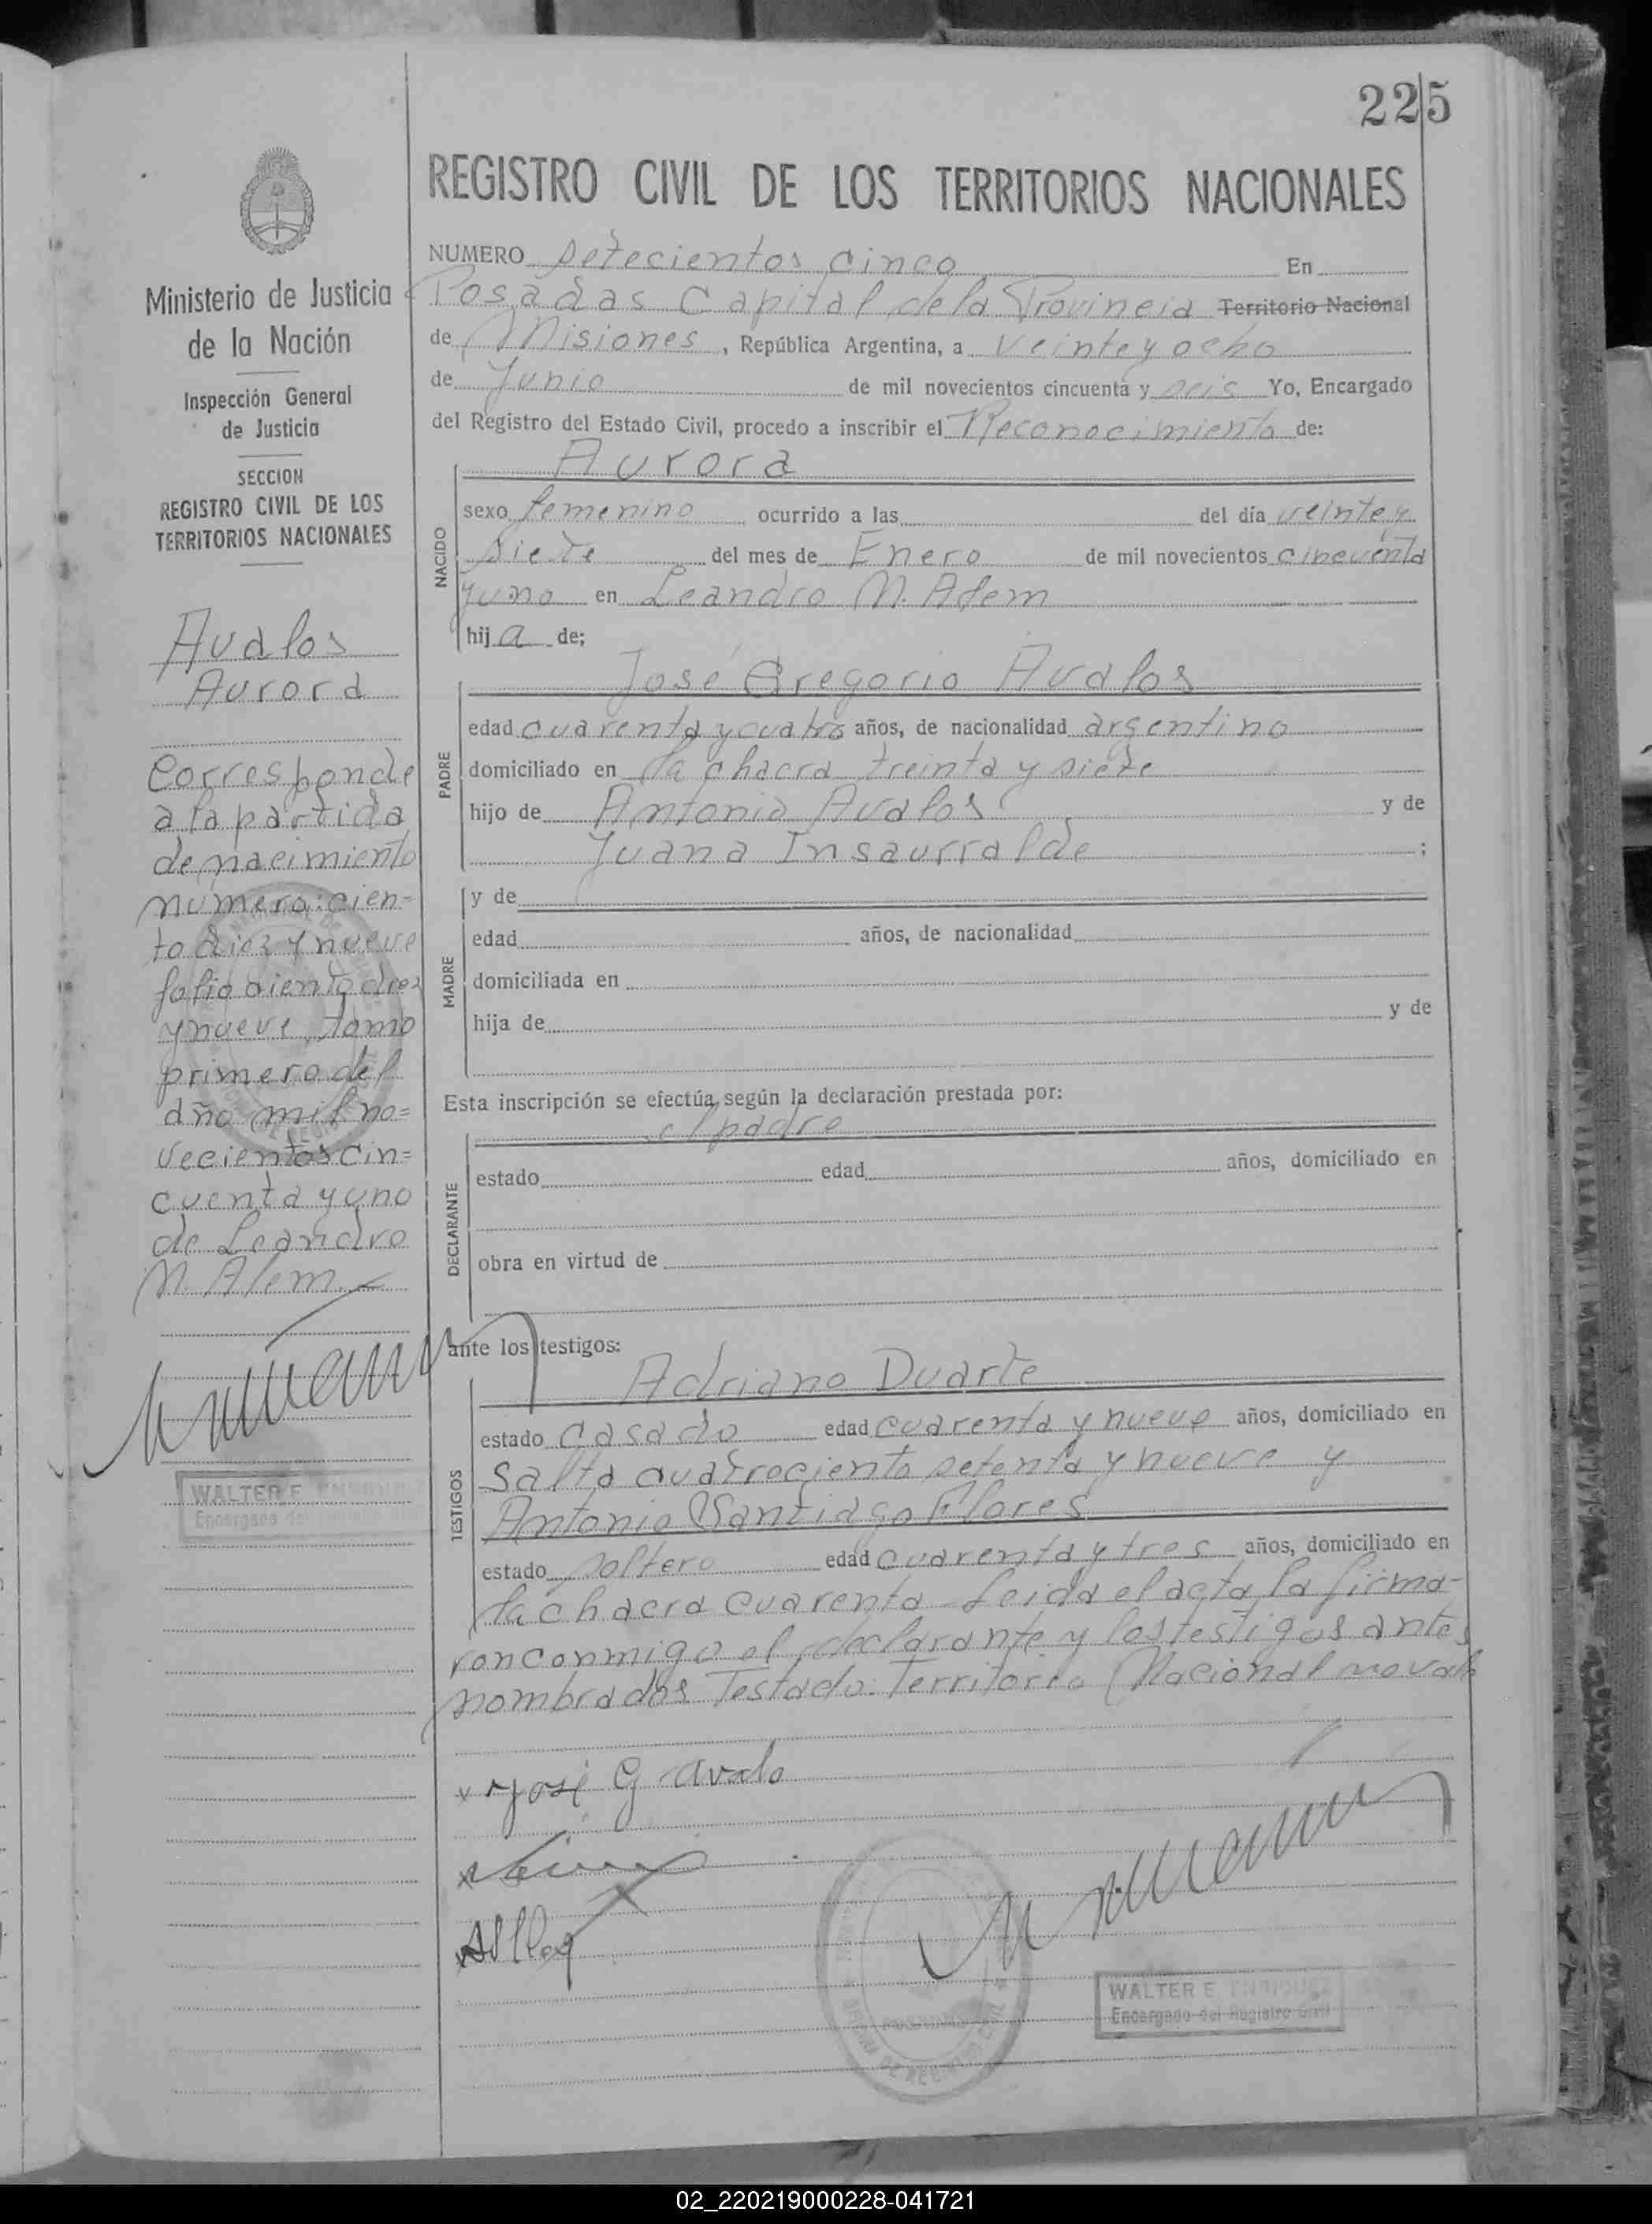 225
REGISTRO CIVIL DE LOS TERRITORIOS NACIONALES
Ministerio de Justicia
de la Nación
Inspección General
de Justicia
SECCION
REGISTRO CIVIL DE LOS
TERRITORIOS NACIONALES
Avalos
Aurora
Corresponde
a la partida
de nacimiento
número: cien-
to diez y nueve
folio ciento diez
y nueve, tomo
primero del
año mil no=
vecientos cin=
cuenta y uno
de Leandro
N. Alem.
WALTER E. ENRIQUEZ
Encargado del Registro Civil
NUMERO setecientos cinco En
Posadas Capital de la Provincia Territorio Nacional
de Misiones, República Argentina, a veinte y ocho
de Junio de mil novecientos cincuenta y seis Yo, Encargado
del Registro del Estado Civil, procedo a inscribir el Reconocimiento de:
NACIDO
Aurora
sexo femenino ocurrido a las del día veinte y
siete del mes de Enero de mil novecientos cincuenta
y uno en Leandro N. Alem
hij a de;
PADRE
José Gregorio Avalos
edad cuarenta y cuatro años, de nacionalidad argentino
domiciliado en la chacra treinta y siete
hijo de Antonio Avalos y de
Juana Insaurralde ;
MADRE
y de
edad años, de nacionalidad
domiciliada en
hija de y de
Esta inscripción se efectúa según la declaración prestada por:
DECLARANTE
el padre
estado edad años, domiciliado en
obra en virtud de
ante los testigos:
TESTIGOS
Adriano Duarte
estado casado edad cuarenta y nueve años, domiciliado en
Salta cuatrociento setenta y nueve y
Antonio Santiago Flores
estado soltero edad cuarenta y tres años, domiciliado en
la chacra cuarenta Leida el acta la firma-
ron conmigo el declarante y los testigos antes
nombrados Testado: Territorio Nacional no vale
x José G Avalo
WALTER E. ENRIQUEZ
Encargado del Registro Civil
02_220219000228-041721